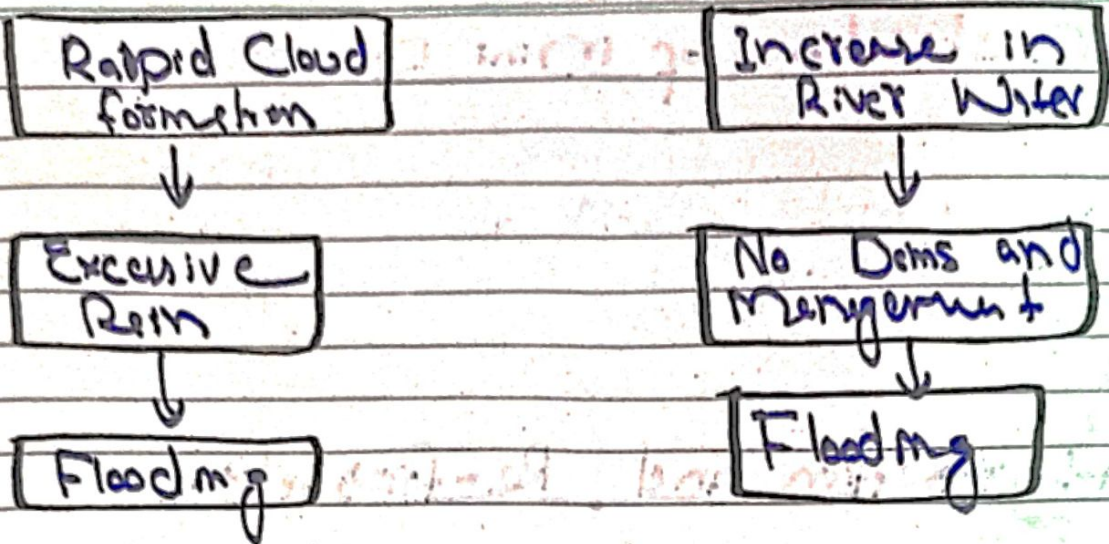 Raipid Cloud
formation
Excessive
Rain
Flooding
Increase in
River Water
No Dams and
Management
Flooding